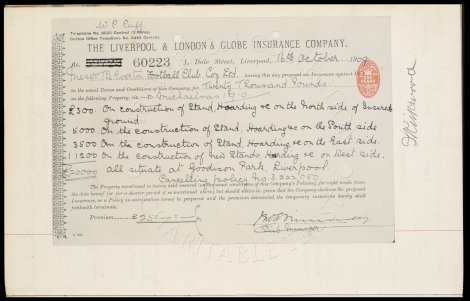 W. C. Cuff
Telephone No. 6003 Central (3 Wires).
Golden Office Telephone No. 6443 Central.
THE LIVERPOOL & LONDON & GLOBE INSURANCE COMPANY.
No. 60223 1, Dale Street, Liverpool, 16th October 1909
Messrs The Everton Football Club Co. Ltd. having this day proposed an Insurance against
on the usual Terms and Conditions of this Company for Twenty Thousand Pounds
on the following Property, viz. to Michaelmas 1910
£300. On construction of Stand Hoarding &c on the North side of Insured
ground.
5000 On the construction of Stand Hoarding &c on the South side
3500 On the construction of Stand Hoarding &c on the East side.
11200 On the construction of New Stands Hoarding &c on West side.
£20000 All situate at Goodison Park, Liverpool.
Cancelling policy No 3.222.050.
The Property mentioned is hereby held insured on the usual conditions of this Company's Policies, for eight weeks from
the date hereof (or for a shorter period if so mentioned above), but should advice be given that the Company declines the proposed
Insurance, or a Policy in satisfaction hereof be prepared and the premium demanded, the temporary insurance hereby shall
forthwith terminate.
Premium £25 : - : -